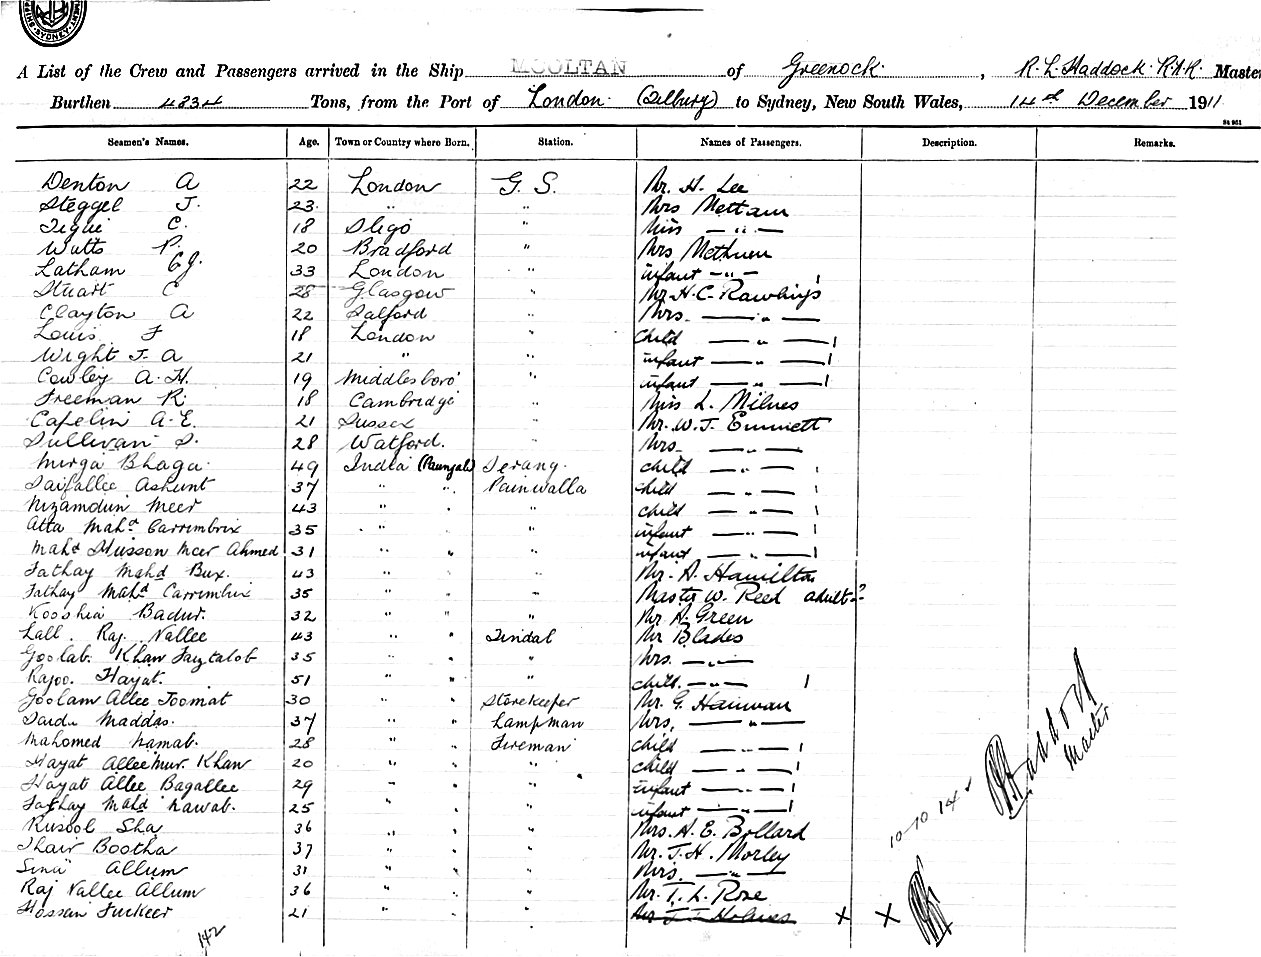 SYDNEY
A List of the Crew and Passengers arrived in the Ship MOOLTAN of Greenock, R. L. Haddock. R.N.R. Master
Burthen 4834 Tons, from the Port of London (Tilbury) to Sydney, New South Wales, 14th December 1911
Seamen's Names. Age. Town or Country where Born. Station. Names of Passengers. Description. Remarks.
Denton A 22 London G. S. Mr. H. Lee
Steggel J. 23 " " Mrs Mettam
Tighe C. 18 Sligo " Miss — " —
Watts P. 20 Bradford " Mrs Methuen
Latham C.J. 33 London " infant — " — 1
Stuart C 28 Glasgow " Mr. H. C. Rawlings
Clayton A 22 Salford " Mrs. — " —
Louis F 18 London " child — " — 1
Wight J. A 21 " " infant — " — 1
Cowley A. H. 19 Middlesboro' " infant — " — 1
Freeman R. 18 Cambridge " Miss L. Milnes
Capelin A. E. 21 Sussex " Mr. W. J. Emmett
Sullivan S. 28 Watford. " Mrs. — " —
Mirga Bhaga. 49 India (Paunjab) Serang. child — " — 1
Saifallee Ashunt 37 " " Painwalla child — " — 1
Nizamdun Meer 43 " " " child — " — 1
Atta Mahd Carrimbux 35 " " " infant — " — 1
Mahd Husson Meer Ahmed 31 " " " infant — " — 1
Fathay Mahd Bux. 43 " " " Mr. A. Hamilton
Fathay Mahd Carrimbux 35 " " " Master W. Reed adult?
Kooshia Badur. 32 " " " Mr A. Green
Lall. Raj. Vallee 43 " " Tindal Mr Blades
Goolab. Khan Faiztalob 35 " " " Mrs. — " —
Rajoo. Hayat. 51 " " " child. — " — 1
Goolam Allee Joomat 30 " " Storekeeper Mr. G.
Saidu Maddas. 37 " " Lampman Mrs. — " —
Mahomed Namab. 28 " " Fireman child — " — 1
Hayat Allee Mur. Khan 20 " " " child — " — 1
Hayat Allee Bagallee 29 " " " infant — " — 1
Fathay Mahd Nawab. 25 " " " infant — " — 1
Rusool Sha 36 " " " Mrs. H. E. Bollard
Thair Bootha 37 " " " Mr. J. H. Morley
Sina Allum 31 " " " Mrs. — " —
Raj Vallee Allum 36 " " " Mr. T. L. Rose
Hossain Furkeer 21 " " " Mr J. T. Holmes X X
142
10-10-14
Haddock
Master